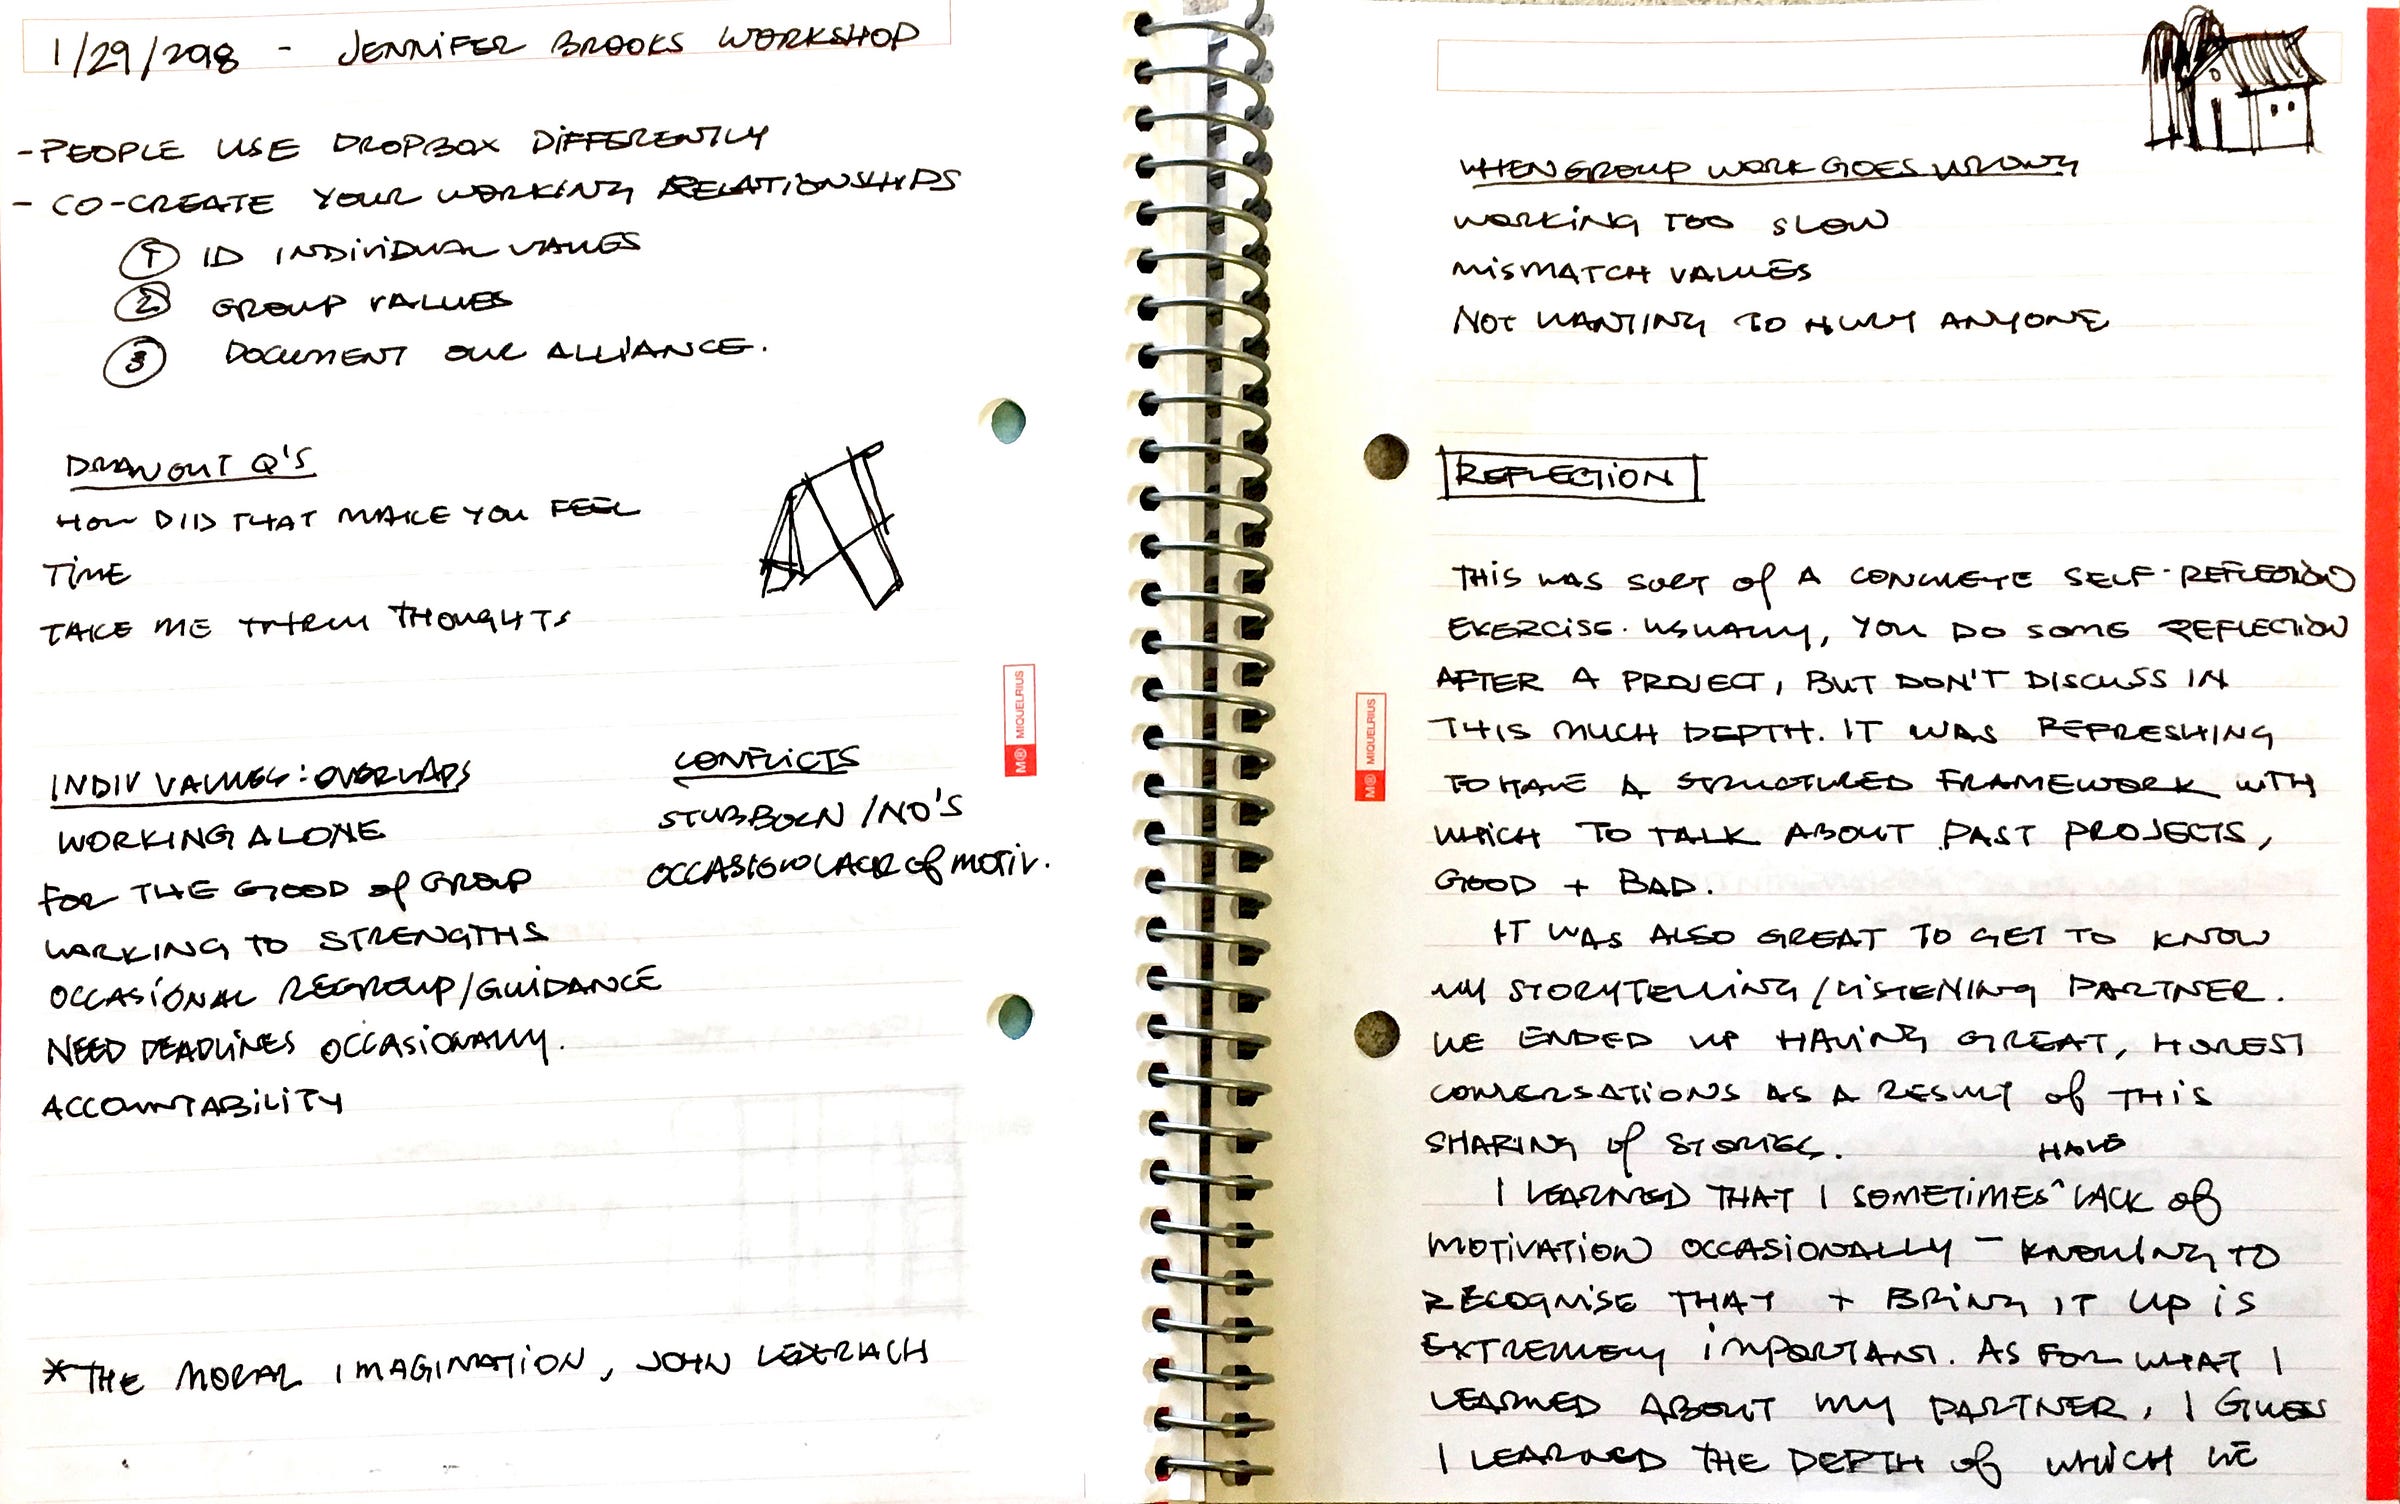 1/29/2018 - JENNIFER BROOKS WORKSHOP
- PEOPLE USE DROPBOX DIFFERENTLY
- CO-CREATE YOUR WORKING RELATIONSHIPS
① ID INDIVIDUAL VALUES
② GROUP VALUES
③ DOCUMENT OUR ALLIANCE.
DRAW OUT Q'S
HOW DID THAT MAKE YOU FEEL
TIME
TAKE ME THRU THOUGHTS
INDIV VALUES: OVERLAPS
WORKING ALONE
FOR THE GOOD of GROUP
WORKING TO STRENGTHS
OCCASIONAL REGROUP/GUIDANCE
NEED DEADLINES OCCASIONALLY.
ACCOUNTABILITY
CONFLICTS
STUBBORN / NO'S
OCCASION LACK of MOTIV.
* THE MORAL IMAGINATION, JOHN
M® MIQUELRIUS
WHEN GROUP WORK GOES WRONG
WORKING TOO SLOW
MISMATCH VALUES
NOT WANTING TO HURT ANYONE
REFLECTION
THIS WAS SORT of A CONCRETE SELF-REFLECTION
EXERCISE. USUALLY, YOU DO SOME REFLECTION
AFTER A PROJECT, BUT DON'T DISCUSS IN
THIS MUCH DEPTH. IT WAS REFRESHING
TO HAVE A STRUCTURED FRAMEWORK WITH
WHICH TO TALK ABOUT PAST PROJECTS,
GOOD + BAD.
IT WAS ALSO GREAT TO GET TO KNOW
MY STORYTELLING/LISTENING PARTNER.
WE ENDED UP HAVING GREAT, HONEST
CONVERSATIONS AS A RESULT of THIS
SHARING of STORIES.
HAVE
I LEARNED THAT I SOMETIMES ^ LACK of
MOTIVATION OCCASIONALLY - KNOWING TO
RECOGNISE THAT + BRING IT UP IS
EXTREMELY IMPORTANT. AS FOR WHAT I
LEARNED ABOUT MY PARTNER, I GUESS
I LEARNED THE DEPTH of WHICH WE
M® MIQUELRIUS